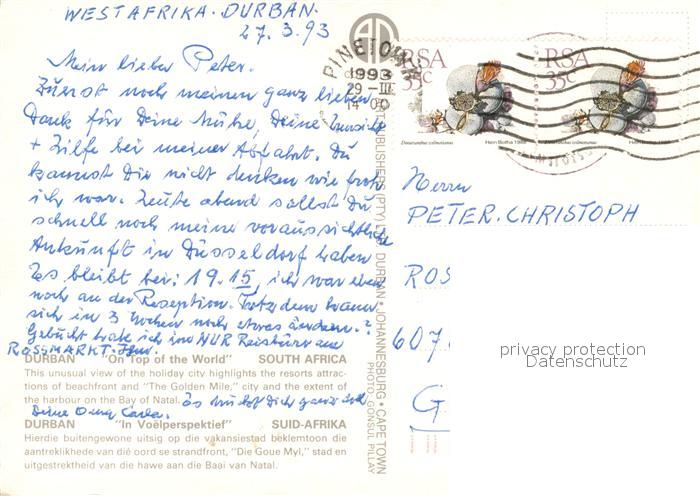 WESTAFRIKA. DURBAN.
27.3.93
Mein lieber Peter.
Zuerst noch meinen ganz lieben
Dank für Deine Mühe, Deine
+ Hilfe bei meiner Abfahrt. Du
kannst Dir nicht denken wie froh
ich war. Heute abend sollst Du
schnell noch meine voraussichtliche
Ankunft in Düsseldorf haben
Es bleibt bei: 19.15, ich war eben
noch an der Reseption. Trotzdem kann
sich in 3 Wochen noch etwas ändern.
Gebucht hab ich im NUR Reisebüro am
ROSSMARKT.
DURBAN "On Top of the World" SOUTH AFRICA
This unusual view of the holiday city highlights the resorts attrac-
tions of beachfront and "The Golden Mile," city and the extent of
the harbour on the Bay of Natal. Es drückt Dich ganz
Deine Omy Carla.
DURBAN "In Voëlperspektief" SUID-AFRIKA
Hierdie buitengewone uitsig op die vakansiestad beklemtoon die
aantreklikhede van dié oord se strandfront, "Die Goue Myl," stad en
uitgestrektheid van die hawe aan die Baai van Natal.
PUBLISHERS (PTY) DURBAN • JOHANNESBURG • CAPE TOWN
PHOTO: GONSUL PILLAY
PINE
1993
29 – III
14 00
RSA
35c
Dinteranthus
Hein Botha 1988
RSA
35c
Hein Botha 1988
Herrn
PETER. CHRISTOPH
ROS
607
G
privacy protection
Datenschutz